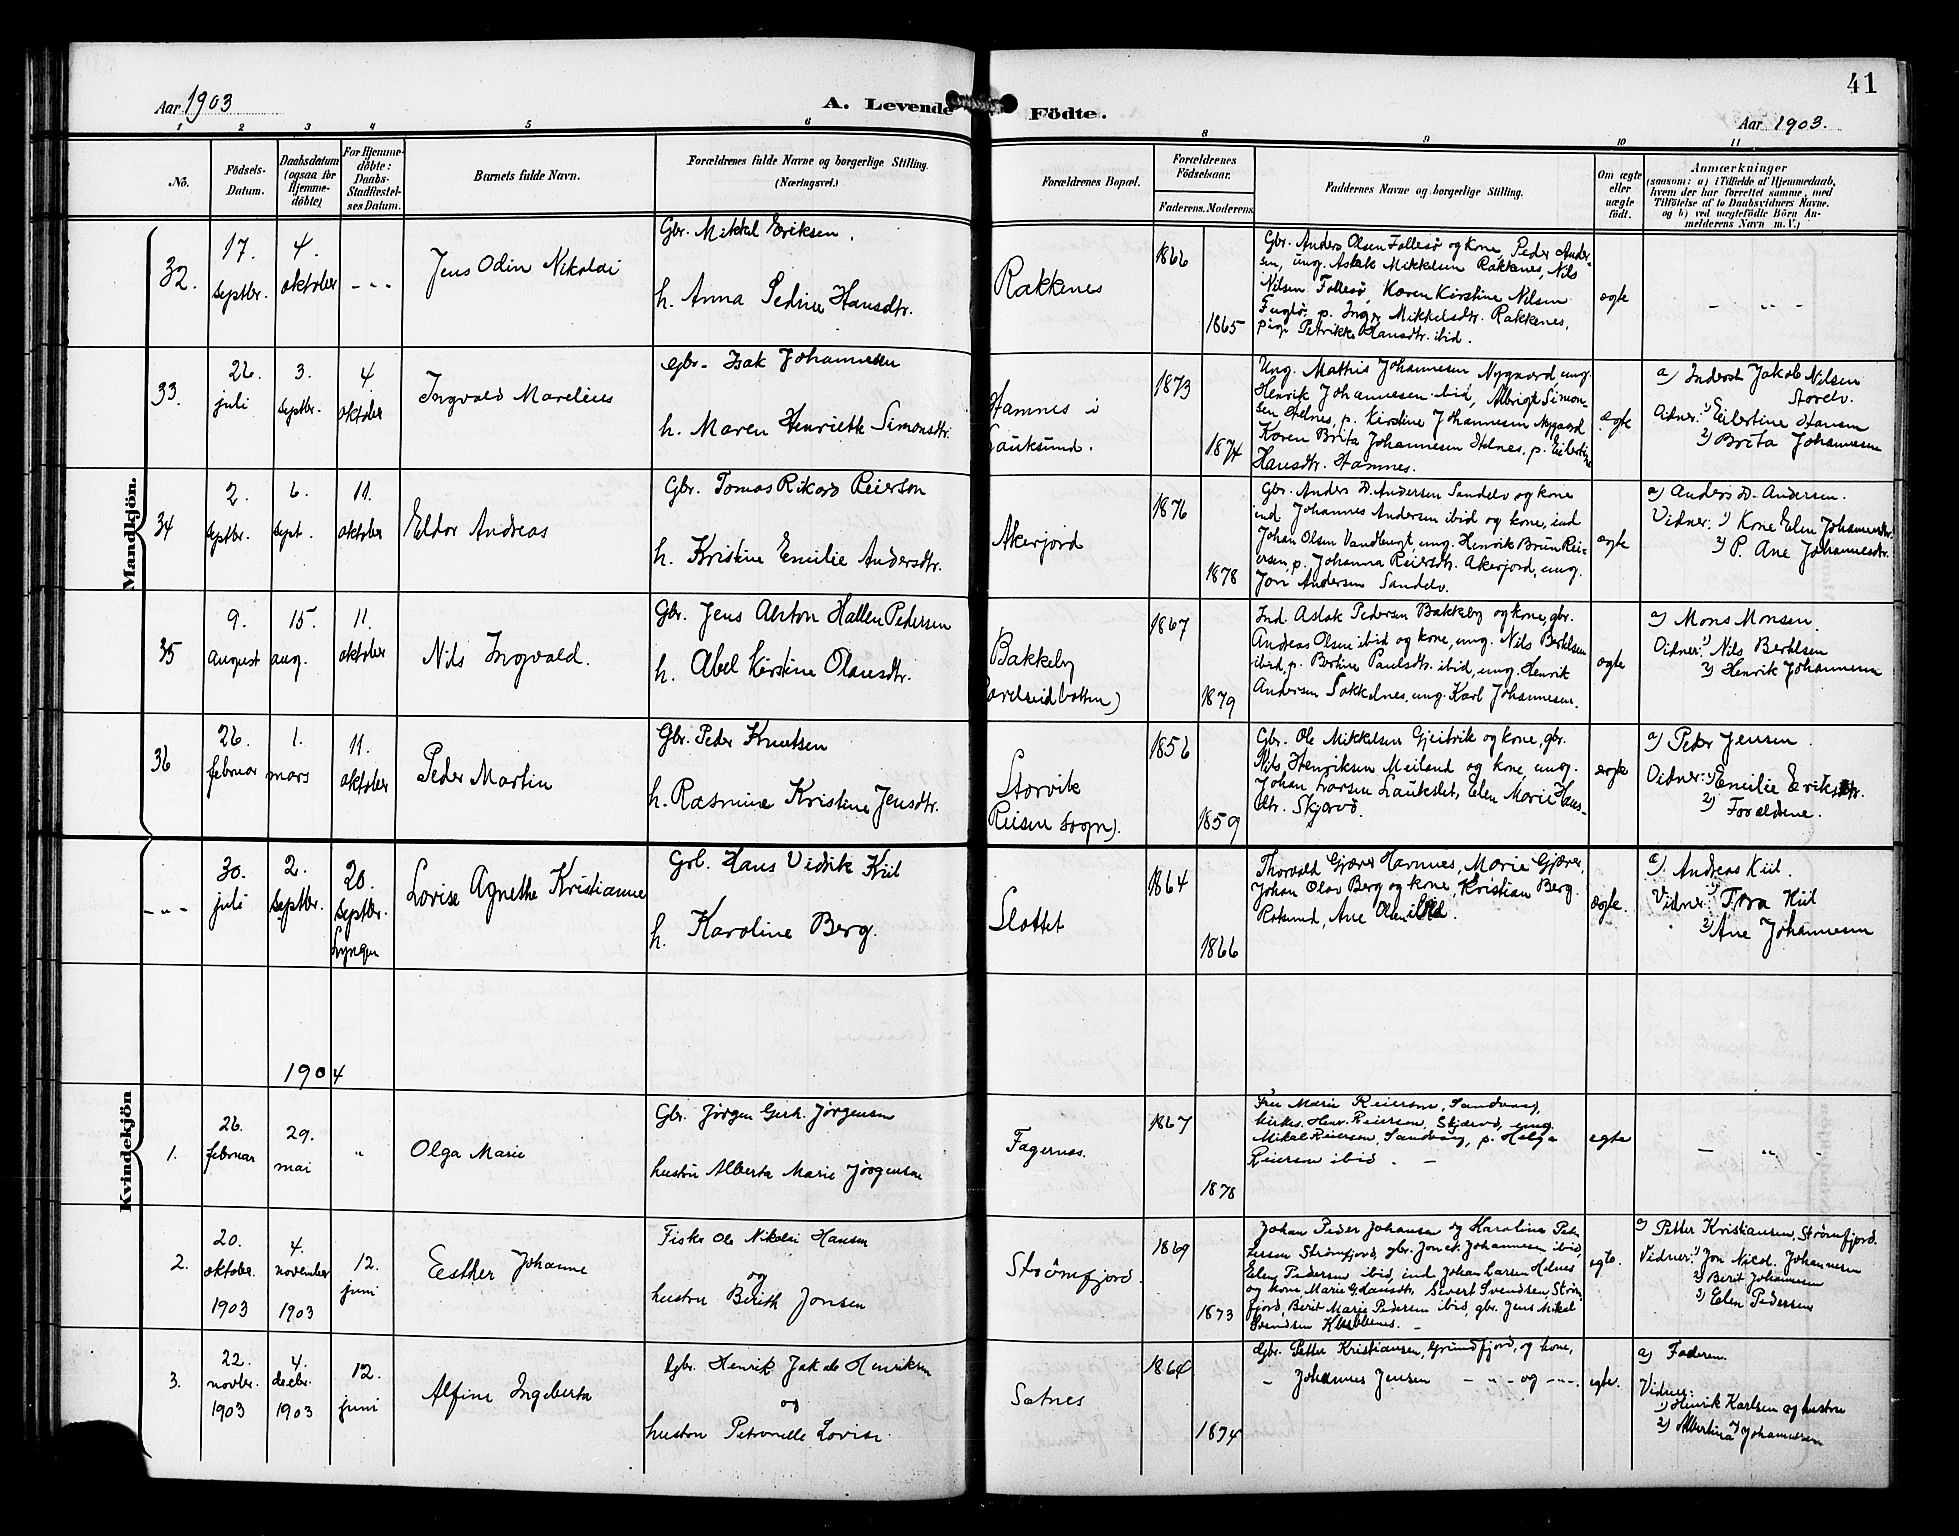 41
Aar 1903
A. Levende Födte.
Aar 1903.
1 2 3 4 5 6 8 9 10 11
No.
Födsels-
Datum.
Daabsdatum
(ogsaa for
Hjemme-
döbte)
For Hjemme-
döbte:
Daabs-
Stadfæstel-
ses Datum.
Barnets fulde Navn.
Forældrenes fulde Navne og borgerlige Stilling.
(Næringsvei.)
Forældrenes Bopæl.
Forældrenes
Födselsaar.
Faderens. Moderens.
Faddernes Navne og borgerlige Stilling.
Om ægte
eller
uægte
födt.
Anmærkninger
(saasom: a) i Tilfælde af Hjemmedaab,
hvem der har forrettet samme, med
Tilföielse af to Daabsvidners Navne.
og b) ved uægtefödte Börn An-
melderens Navn m. V.)
Mandkjön.
32.
17.
septbr.
4.
oktober
- - -
Jens Odin Nikolai
Gbr. Mikkel Eriksen.
h. Anna Pedrine Hansdtr.
Rakkenes
1866
1865
Gbr. Anders Olsen Follesø og kone, Peder Ander-
sen, ung. Aslak Mikkelsen Rakkenes, Nils
Nilsen Follesø, Karen Kirstine Nilsen
Fuglø, p. Inger Mikkelsdtr. Rakkenes,
pige Petrikke Hansdtr. ibid.
ægte
- " -
33.
26.
juli
3.
septbr.
4
oktober
Ingvald Marelius
Gbr. Isak Johannesen
h. Maren Henriette Simonsdtr.
Hamnes i
Gauksund.
1873
1874
Ung. Mathis Johannesen Nygaard, ung.
Henrik Johannesen ibid, Albrigt Simon-
sen Helnes, p. Kirstine Johannesen Nygaard
Karen Brita Johannesen Helnes, p. Eilertine
Hansdtr. Hamnes.
ægte
a) Inderst Jakob Nilsen
Storelv.
Vidner: 1) Eilertine Hansen
2) Brita Johannesen
34
2.
septbr.
6.
sept.
11.
oktober
Eldor Andreas
Gbr. Tomas Rikard Reiersen
h. Kristine Emilie Andersdtr.
Akerjord
1876
1878
Gbr. Anders D. Andersen Sandelv og kone
ind. Johannes Andersen ibid og kone, ind
Johan Olsen Vandbugt, ung. Henrik Brun Rei-
ersen, p. Johanna Reiersdtr. Akerjord, ung.
Jon Andersen Sandelv.
ægte
a) Anders D. Andersen.
Vidner: 1) Kone Elen Johannesdtr.
2) P. Ane Johannesdtr.
35
9.
august
15.
aug.
11.
oktober
Nils Ingvald.
Gbr. Jens Alston Hallen Pedersen
h. Abel Kirstine Olausdtr.
Bakkeby
1867
1879
Ind. Aslak Pedersen Bakkeby og kone, gbr.
Andreas Olsen ibid og kone, ung. Nils Bertelsen
ibid, p. Bertine Paulsdtr. ibid, ung. Henrik
Andersen Sokkelnes, ung. Karl Johannesen.
ægte
a) Mons Monsen.
Vidner: 1) Nils Bertelsen
2) Henrik Johannesen
36
26.
februar
1.
mars
11.
oktober
Peder Martin
Gbr. Peder Knutsen
h. Rasmine Kristine Jensdtr.
Storvik
Reisen sogn).
1856
1859
Gbr. Ole Mikkelsen Gjeitvik og kone, gbr.
Nils Henriksen Meiland og kone, ung.
Johan Larsen Laukslet, Elen Marie Hans-
dtr. Skjervø.
ægte
a) Peder Jensen.
Vidner: 1) Emilie Eriksdtr.
2) Forældrene.
Kvindekjön
- " -
30.
juli
2.
septbr.
20.
septbr.
Lyngen
Lovise Agnethe Kristianne
Gbr. Hans Vidrik Kiil
h. Karoline Berg.
Slottet
1864
1866
Thorvald Gjæver Havnnes, Marie Gjæver,
Johan Olav Berg og kone, Kristian Berg.
Rotsund, Ane Olsen ibid.
ægte.
a) Andreas Kiil.
Vidner: 1) Tora Kiil
2) Ane Johannesen
1904
1.
26.
februar
29.
mai
"
Olga Marie
Gbr. Jørgen Gerh. Jørgensen
hustru Alberta Marie Jørgensen
Fagernes.
1867
1878
Fru Marie Reiersen, Sandvaag,
kirkes. Henr. Reiersen, Skjærvø, ung.
Mikal Reiersen, Sandvaag, p. Helga
Reiersen ibid. -
egte
- " -
2.
20.
oktober.
1903
4.
november
1903
12.
juni
Eesther Johanne
Fisker Ole Nikolai Hansen
og
hustru Berith Jonsen
Strømfjord.
1869
1873
Johan Peder Johansen og Karoline Pet-
tersen Strømfjord, gbr. Jon N. Johannesen ibid,
Elen Pedersen ibid, ind. Johan Larsen Helnes
og kone Marie Olausdtr, Sivert Svendsen, Strøm-
fjord, Berit Marie Pedersen ibid, gbr. Jens Mikal
Svendsen
egte.
a) Petter Kristiansen, Strømfjord.
Vidner: 1) Jon Nicol. Johannesen
2) Berit Johannesen
3) Elen Pedersen
3.
22.
novbr.
1903
4.
decbr.
1903
12.
juni
Alfine Ingeberta
Gbr. Henrik Jakob Henriksen
og
hustru Petronelle Lovise.
Sotnes
1864
1874
Gbr. Petter Kristiansen, Grundfjord, og kone,
- Johannes Jensen - " - og - " -
egte.
a) Faderen.
Vidner:
1) Henrik Karlsen og hustru
2) Albertina Johannessen